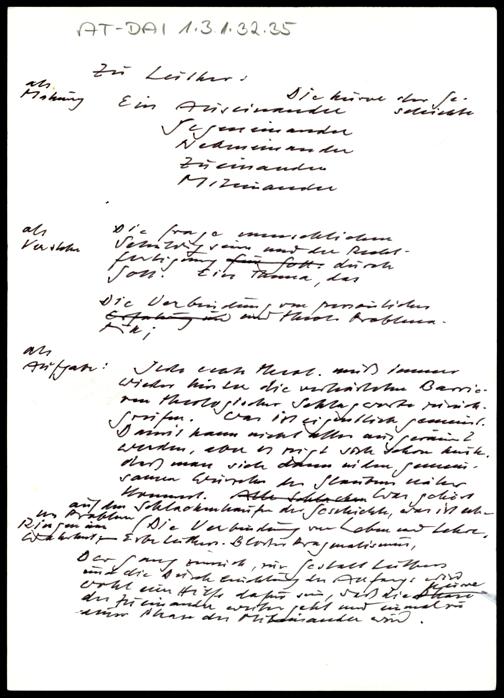 AT-DAI 1.3.1.32.35
Zu Luther:
als Mahnung
Die Kurve der Geschichte
Ein Auseinander
Gegeneinander
Nebeneinander
Zueinander
Miteinander
als
Die Frage menschlichen
Schuldigseins und der Recht-
fertigung für Gott durch
Gott. Ein Thema, das
Die Verbindung von persönlicher
Erfahrung und und theol. Problema-
tik;
als
Aufgabe:
Jede theol. muß immer
wieder hinter die Barrie-
ren theologischer Schlagworte zurück-
greifen. Was ist eigentlich gemeint.
Damit kann nicht alles ausgeräumt
werden, aber es zeigt sich schon heute,
daß man sich dann in den gemein-
samen Wurzeln des Glaubens näher
kommt. Was gehört
auf den Schlackenhaufen der Geschichte, was ist
Problem
Ringen um
Wahrheit
Die Verbindung von Leben und Lehre,
Erbe Luthers. Bloßer Pragmatismus,
Der Gang zurück, zur Gestalt Luthers
und die der Anfänge wird
wohl eine Hilfe dafür sein, daß die Phase Kurve
des Zueinander weiter geht und einmal zu
einer Phase des Miteinander wird.